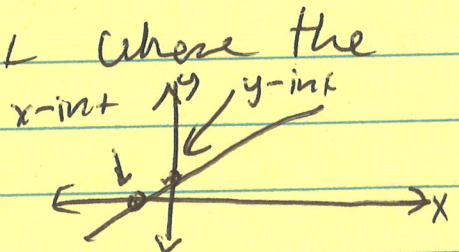 where the
y
x-int
y-int
X